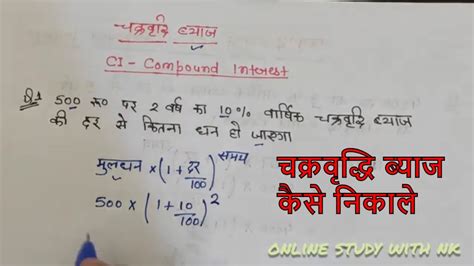 चक्रवृद्धि ब्याज
CI - Compound Interest
Q.1 500 रू० पर 2 वर्ष का 10% वार्षिक चक्रवृद्धि ब्याज
की दर से कितना धन हो जाएगा
मुलधन × (1 + दर/100)^समय
500 × (1 + 10/100)^2
चक्रवृद्धि ब्याज
कैसे निकाले
ONLINE STUDY WITH NK